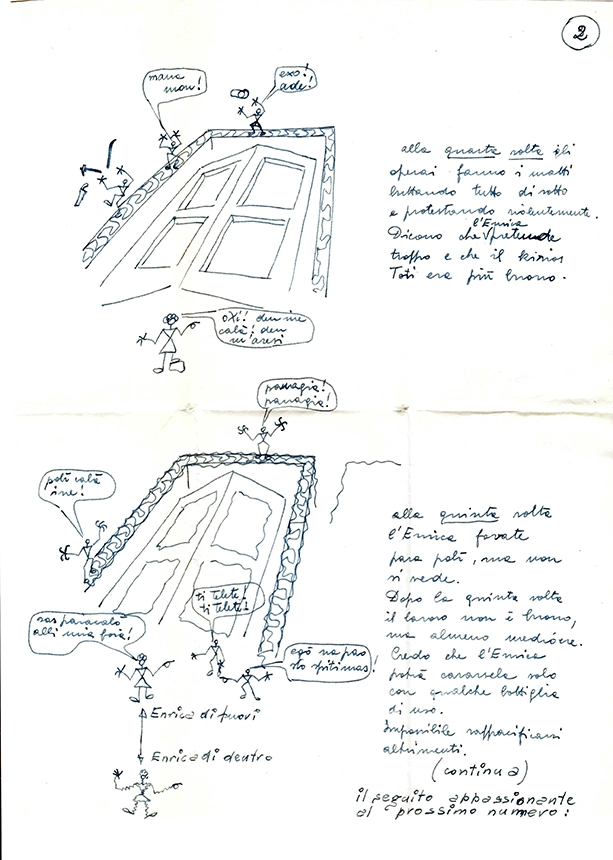 2
mana
mou!
exo!
ade!
alla quarta volta gli
operai fanno i matti
buttando tutto di sotto
e protestando violentemente.
l'Enrica
Dicono che pretende
troppo e che il kirios
Toti era più buono.
OXI! den ine
calà! den
m'aresi
panagia!
panagia!
polì calà
ine!
alla quinta volta
l'Enrica
para polì, ma non
si vede.
Dopo la quinta volta
il lavoro non è buono,
ma almeno mediocre.
Credo che l'Enrica
potrà cavarsela solo
con qualche bottiglia
di uso.
Impossibile rappacificarsi
altrimenti.
(continua)
il seguito appassionante
al prossimo numero:
ti telete!
ti telete!
sas paracalò
alli mia forà!
egò na pao
sto spiti mas!
Enrica di fuori
Enrica di dentro